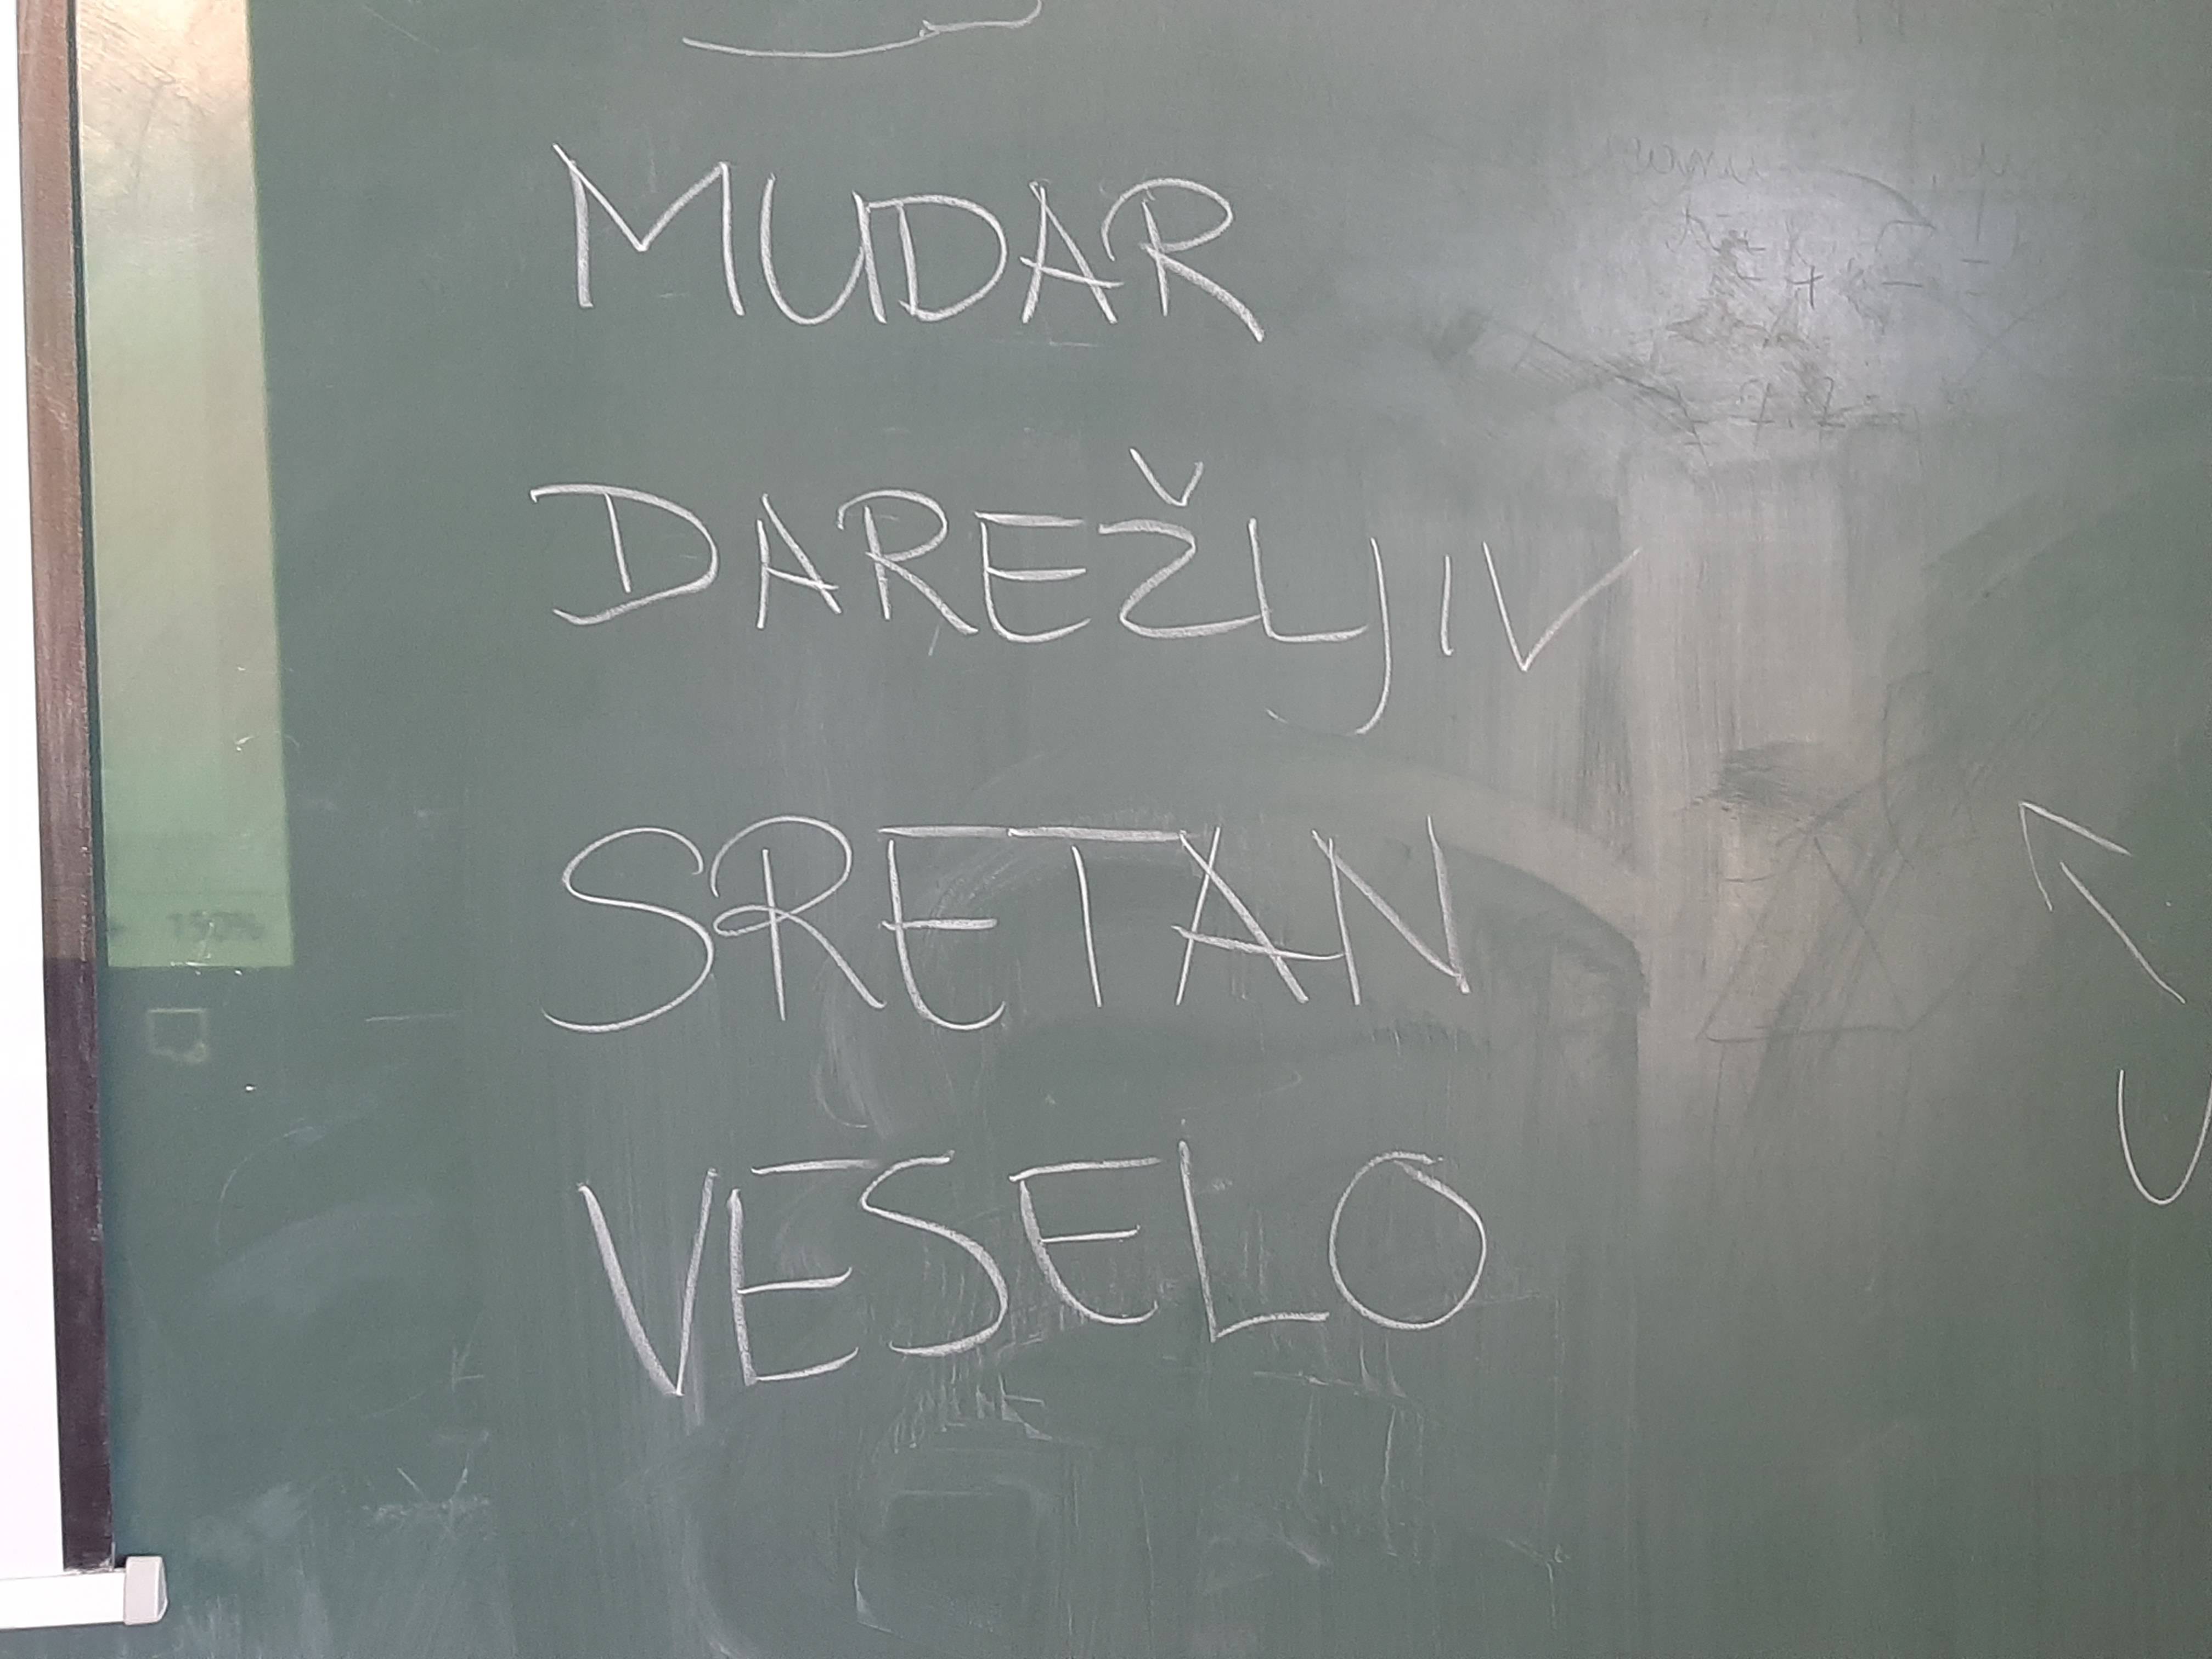 MUDAR
DAREŽLJIV
SRETAN
VESELO
150%